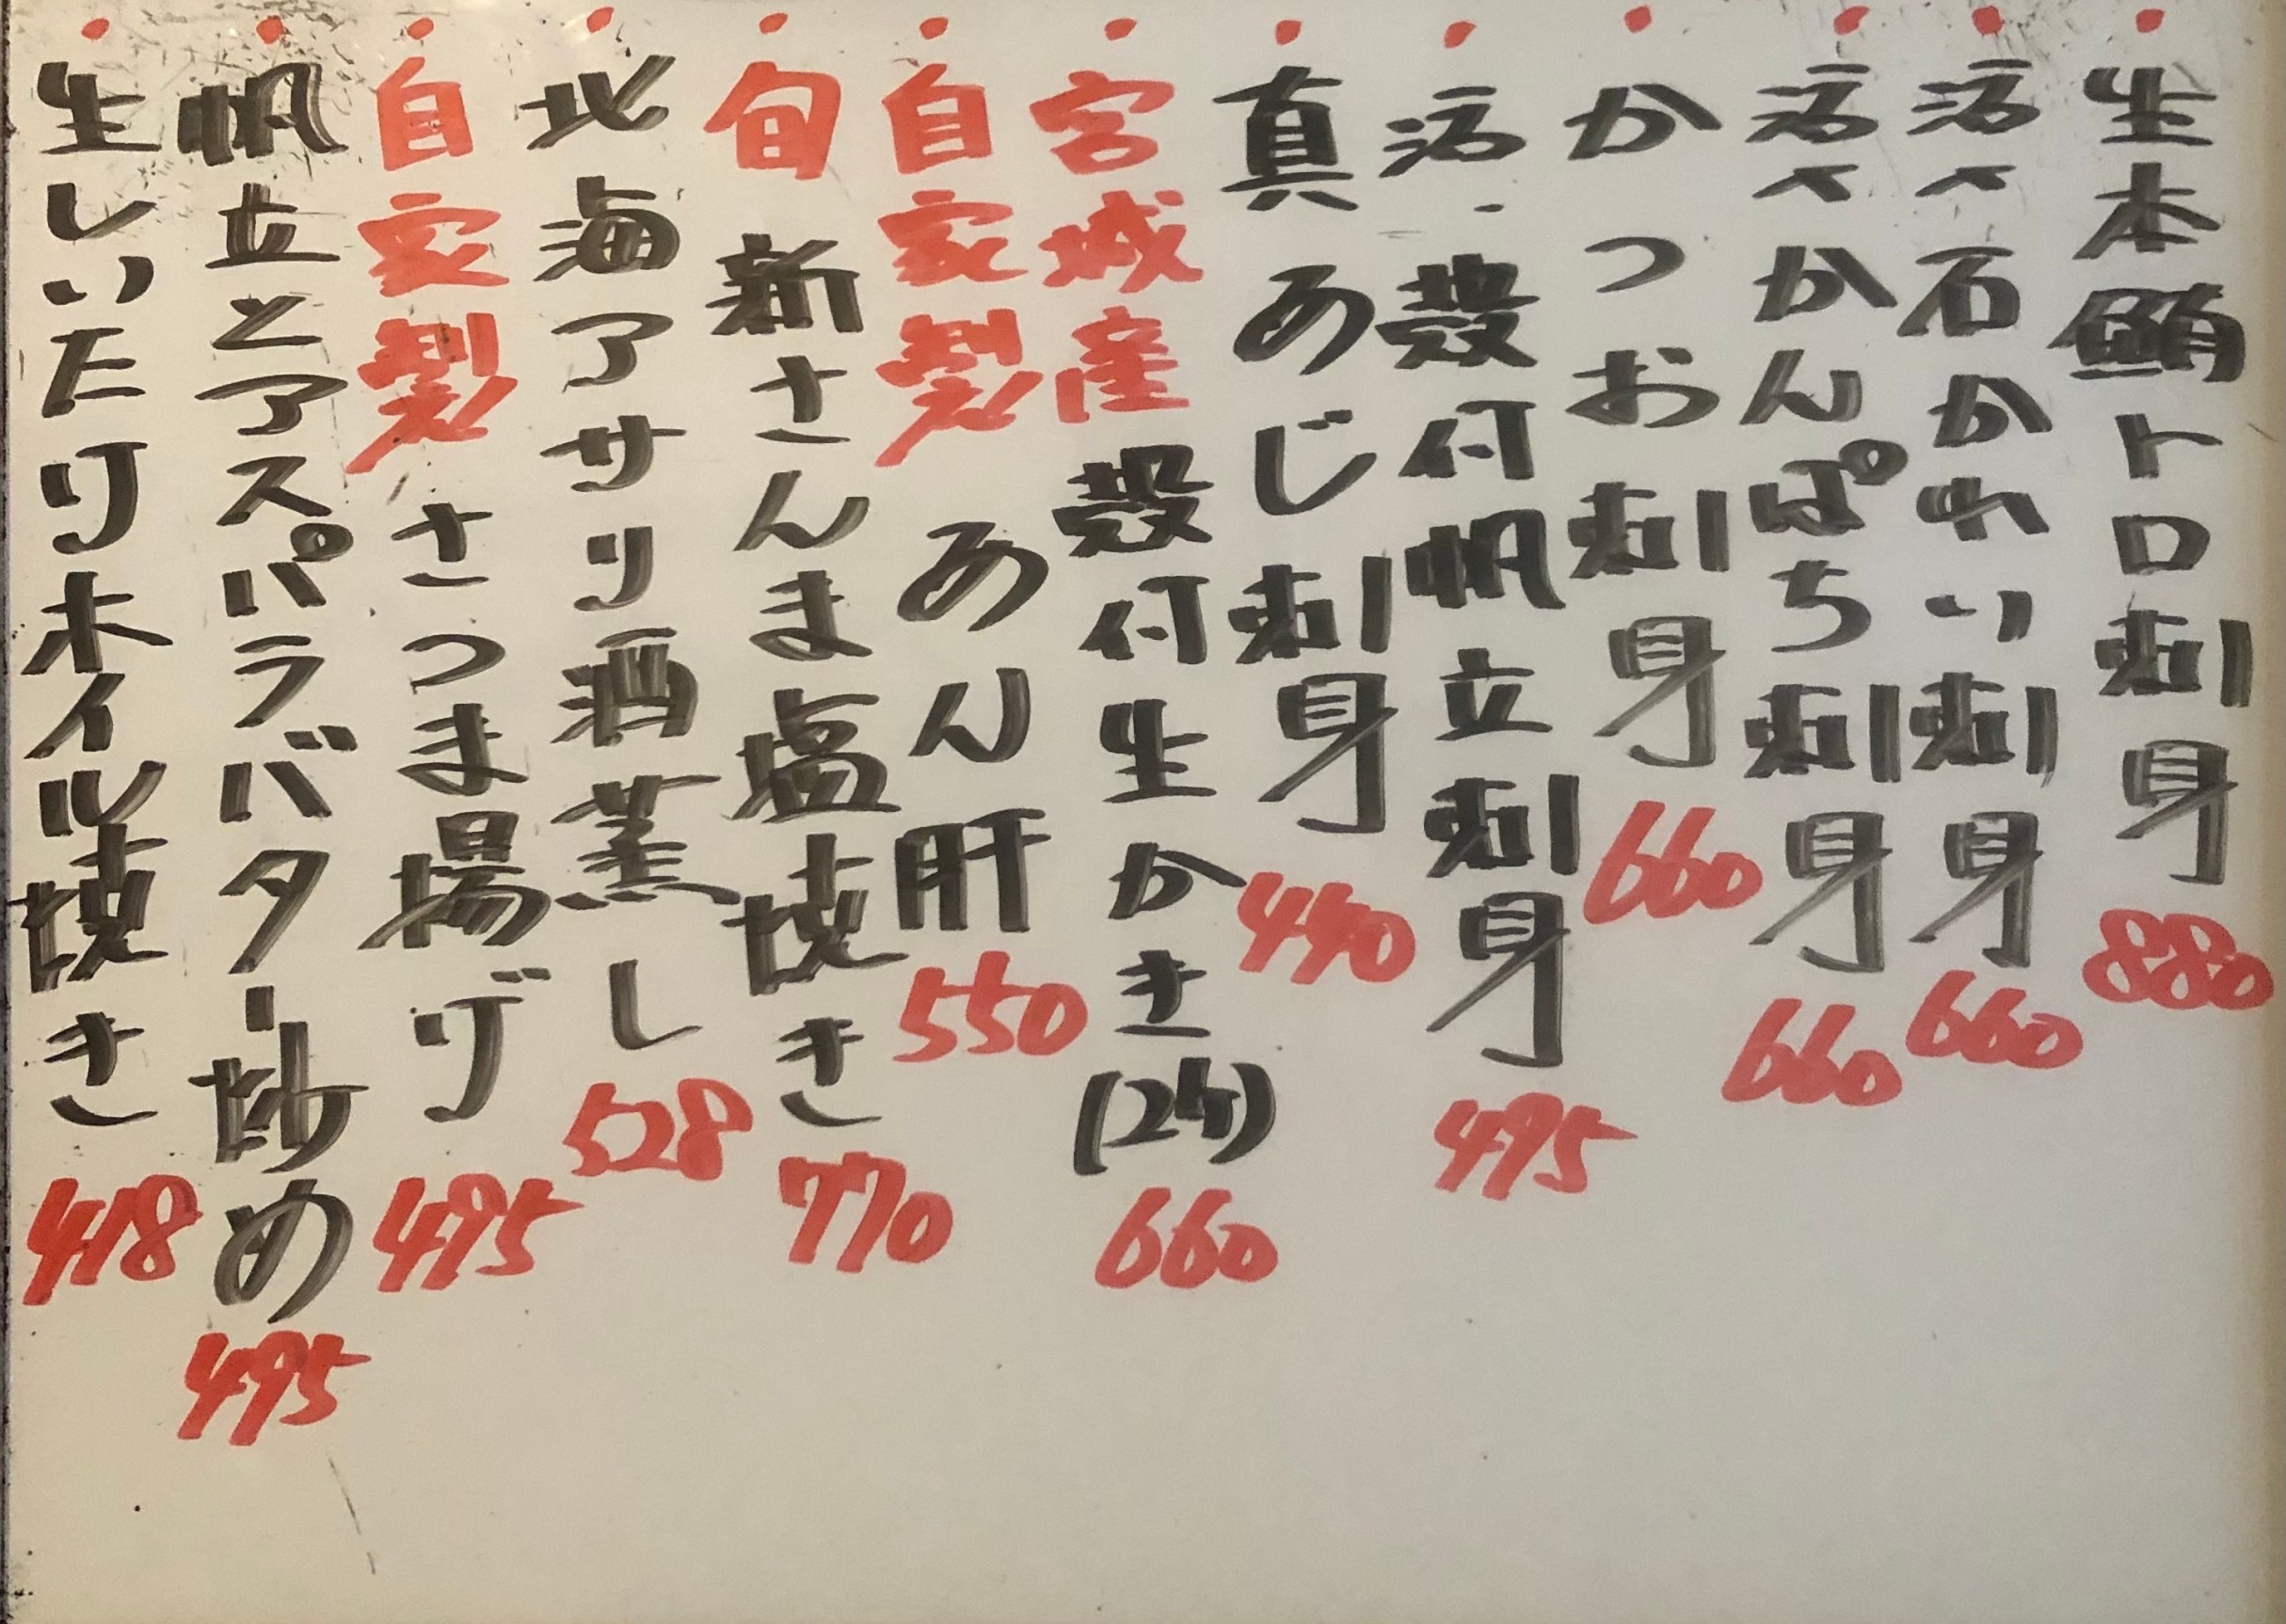 ・生本鮪トロ刺身 880
・活〆石かれい刺身 660
・活〆かんぱち刺身 660
・かつお刺身 660
・活・殻付帆立刺身 495
・真あじ刺身 440
・宮城産 殻付生かき(2ケ) 660
・自家製 あん肝 550
・旬 新さんま塩焼き 770
・北海アサリ酒蒸し 528
・自家製 さつま揚げ 495
・帆立とアスパラバター炒め 495
・生しいたけホイル焼き 418